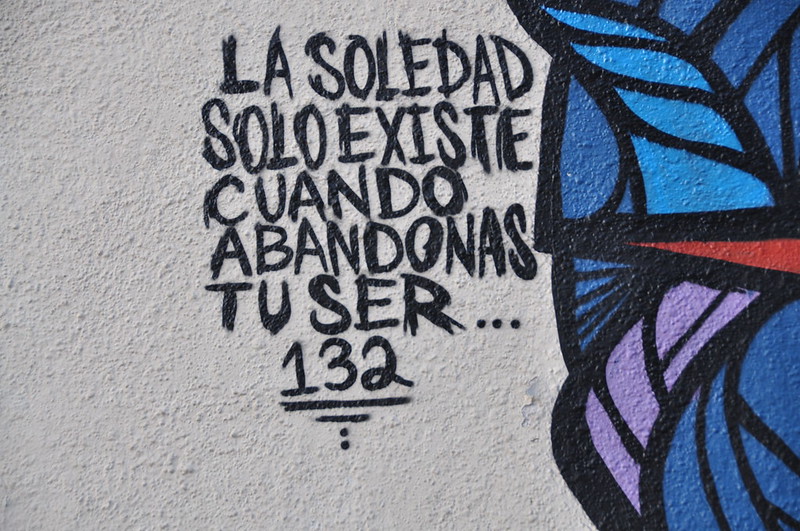 LA SOLEDAD
SOLO EXISTE
CUANDO
ABANDONAS
TU SER...
132